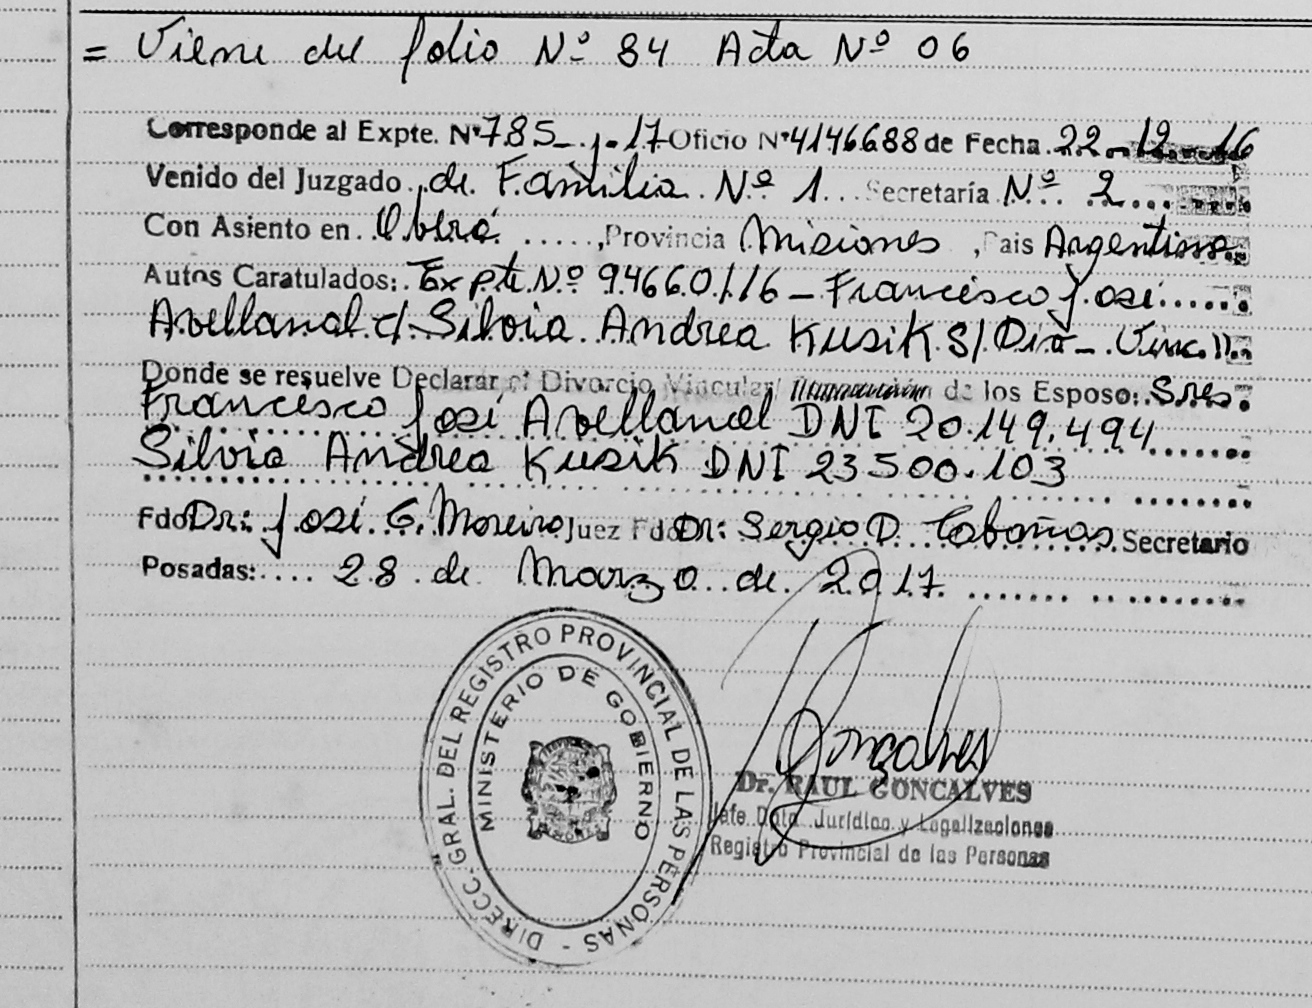 = Viene del folio Nº 84 Acta Nº 06
Corresponde al Expte. Nº 785-J-17 Oficio Nº 4146688 de Fecha 22-12-16
Venido del Juzgado de Familia Nº 1 Secretaría Nº 2
Con Asiento en Oberá, Provincia Misiones, Pais Argentina
Autos Caratulados: Expte. Nº 94660/16 - Francisco José
Avellanal c/ Silvia Andrea Kusik S/ Div- Vinc.
Donde se resuelve Declarar el Divorcio Vincular de los Esposo: Sres
Francisco José Avellanal DNI 20.149.494
Silvia Andrea Kusik DNI 23500.103
Fdo Dr: José G. Moreiro Juez Fdo Dr: Sergio D. Cabañas Secretario
Posadas: 28 de Marzo de 2017
DIRECC. GRAL. DEL REGISTRO PROVINCIAL DE LAS PERSONAS -
MINISTERIO DE GOBIERNO
Gonçalves
Dr. RAUL GONCALVES
Jefe Dpto. Jurídico y Legalizaciones
Registro Provincial de las Personas